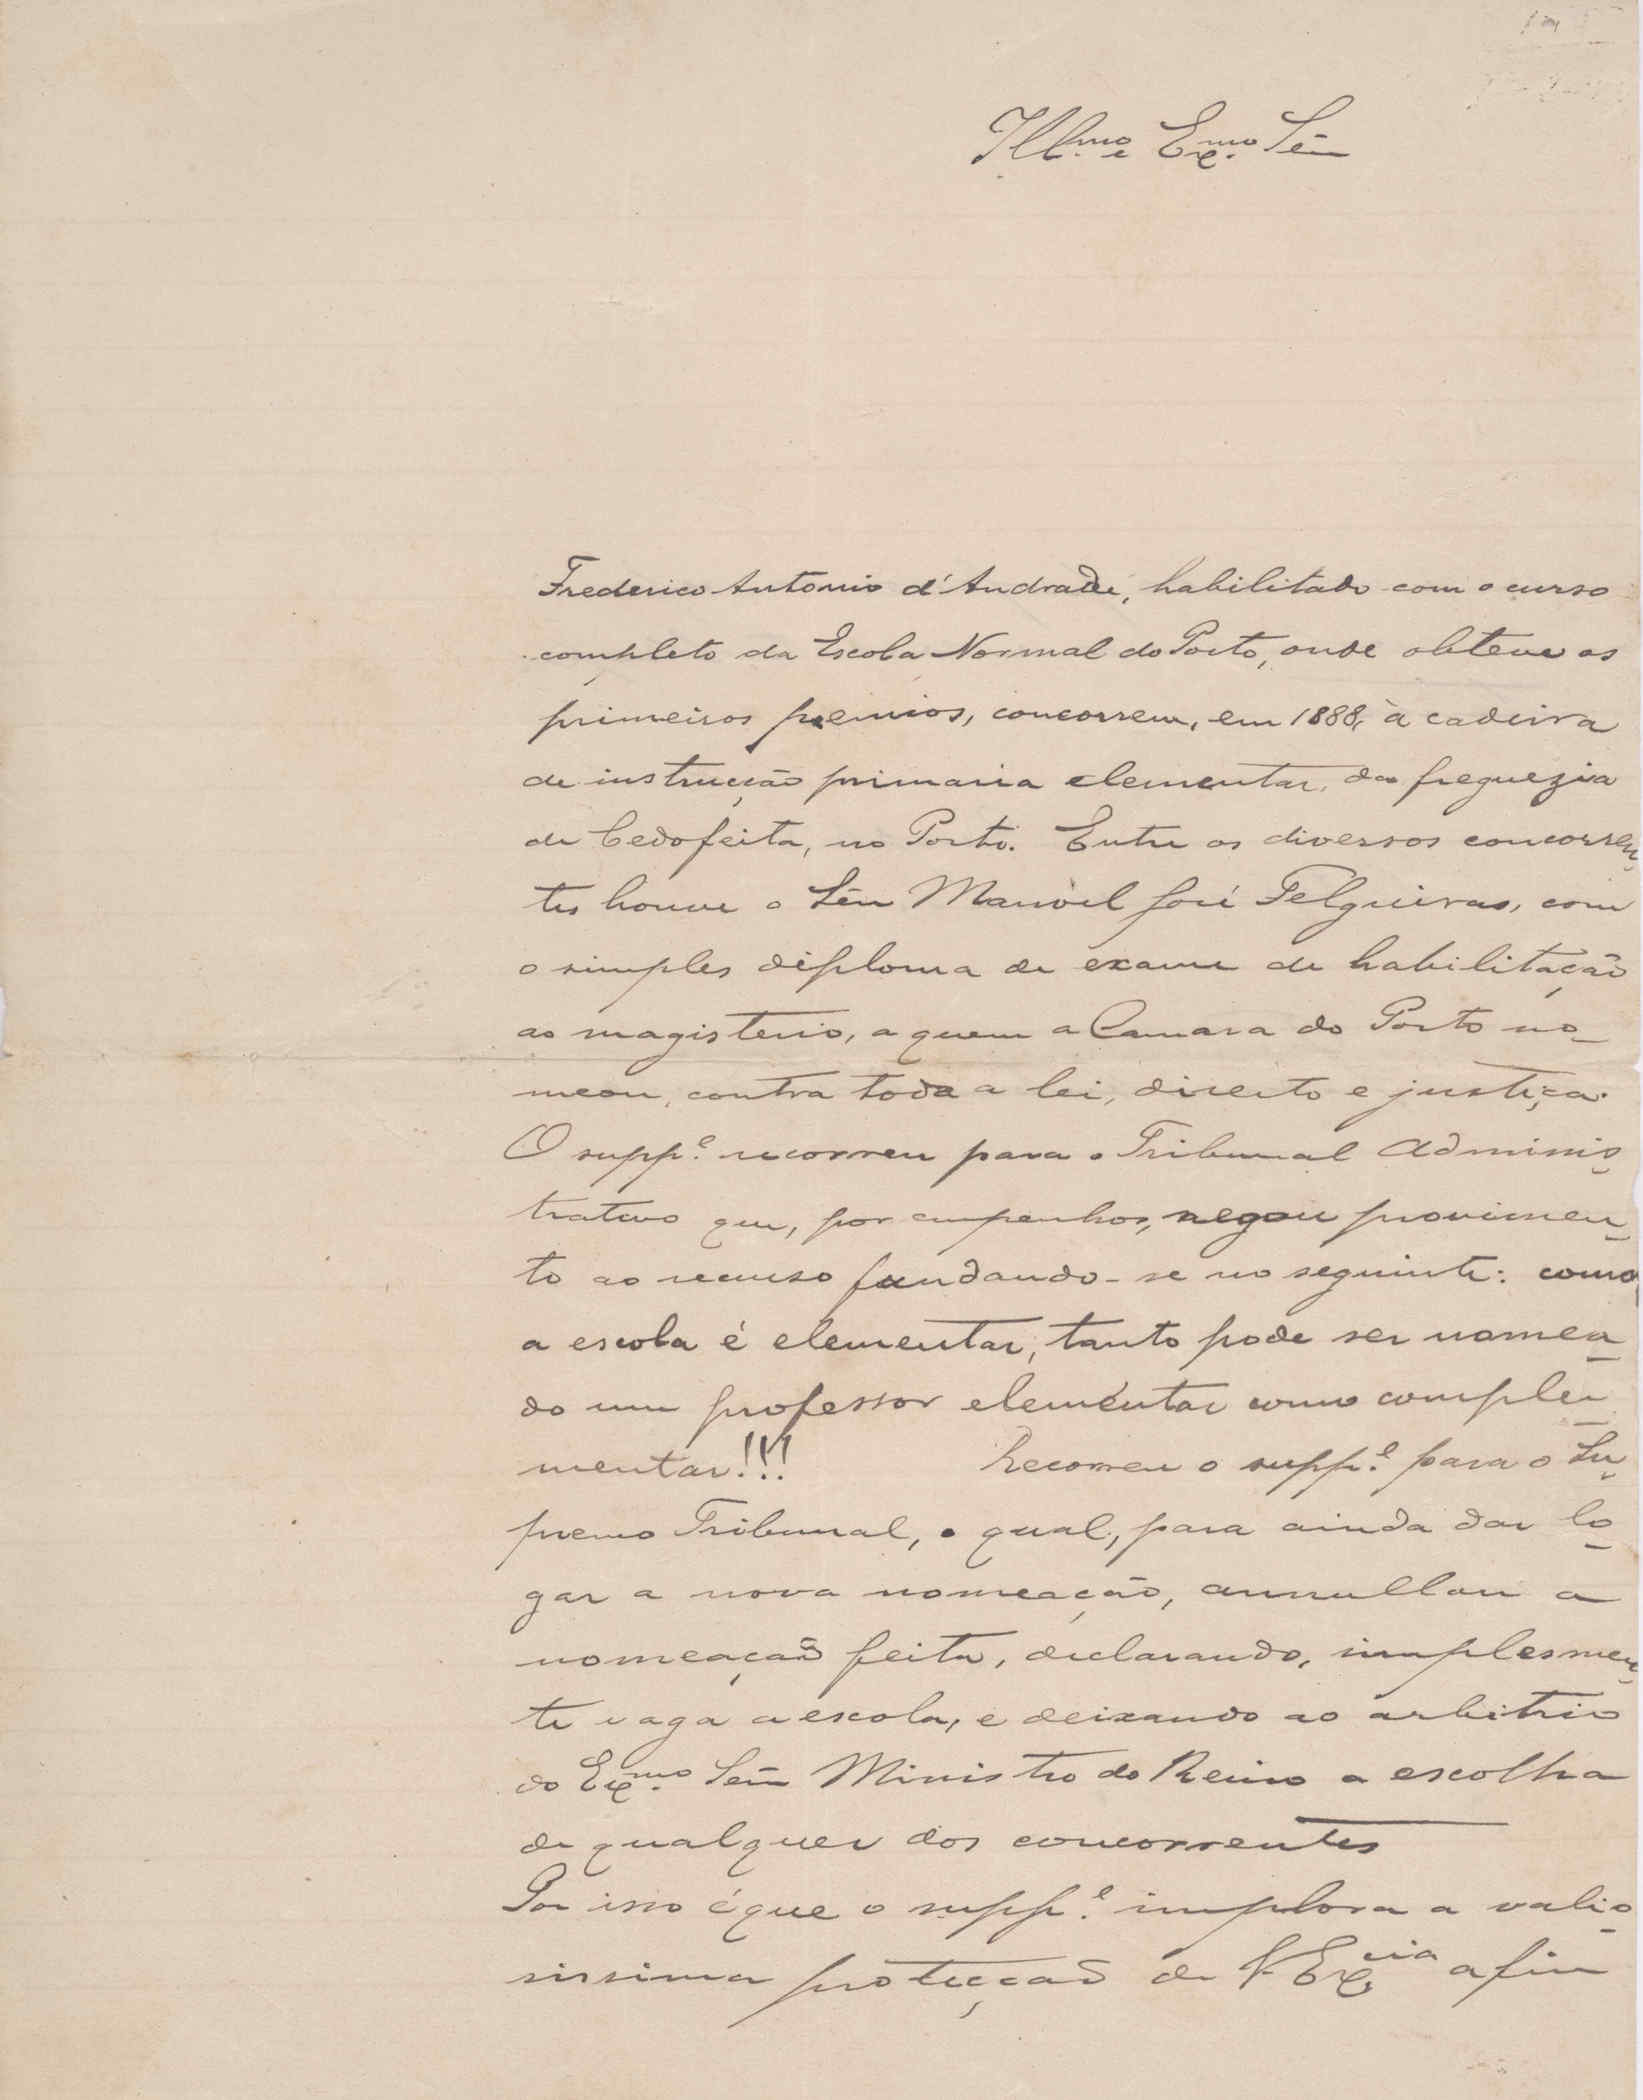 Ill.mo e Ex.mo Sñr
Frederico Antonio d'Andrade, habilitado com o curso
completo da Escola Normal do Porto, onde obteve os
primeiros premios, concorreu, em 1888, à cadeira
de instrucção primaria elementar, da freguezia
de Cedofeita, no Porto. Entre os diversos concorren-
tes houve o Sñr Manoel José Felgueiras, com
o simples diploma de exame de habilitação
ao magisterio, a quem a Camara do Porto no-
meou, contra toda a lei, direito e justiça.
O supp.e recorreu para o Tribunal Adminis-
trativo que, por empenhos, negou provimen-
to ao recurso fundando-se no seguinte: como
a escola é elementar, tanto pode ser nomea-
do um professor elementar como comple-
mentar!!! Recorreu o supp.e para o Su-
premo Tribunal, o qual, para ainda dar lo-
gar a nova nomeação, annullou a
nomeação feita, declarando, simplesmen-
te vaga a escola, e deixando ao arbitrio
do Ex.mo Sñr Ministro do Reino a escolha
de qualquer dos concorrentes
Por isso é que o supp.e implora a valio-
sissima protecção de V. Ex.cia a fim